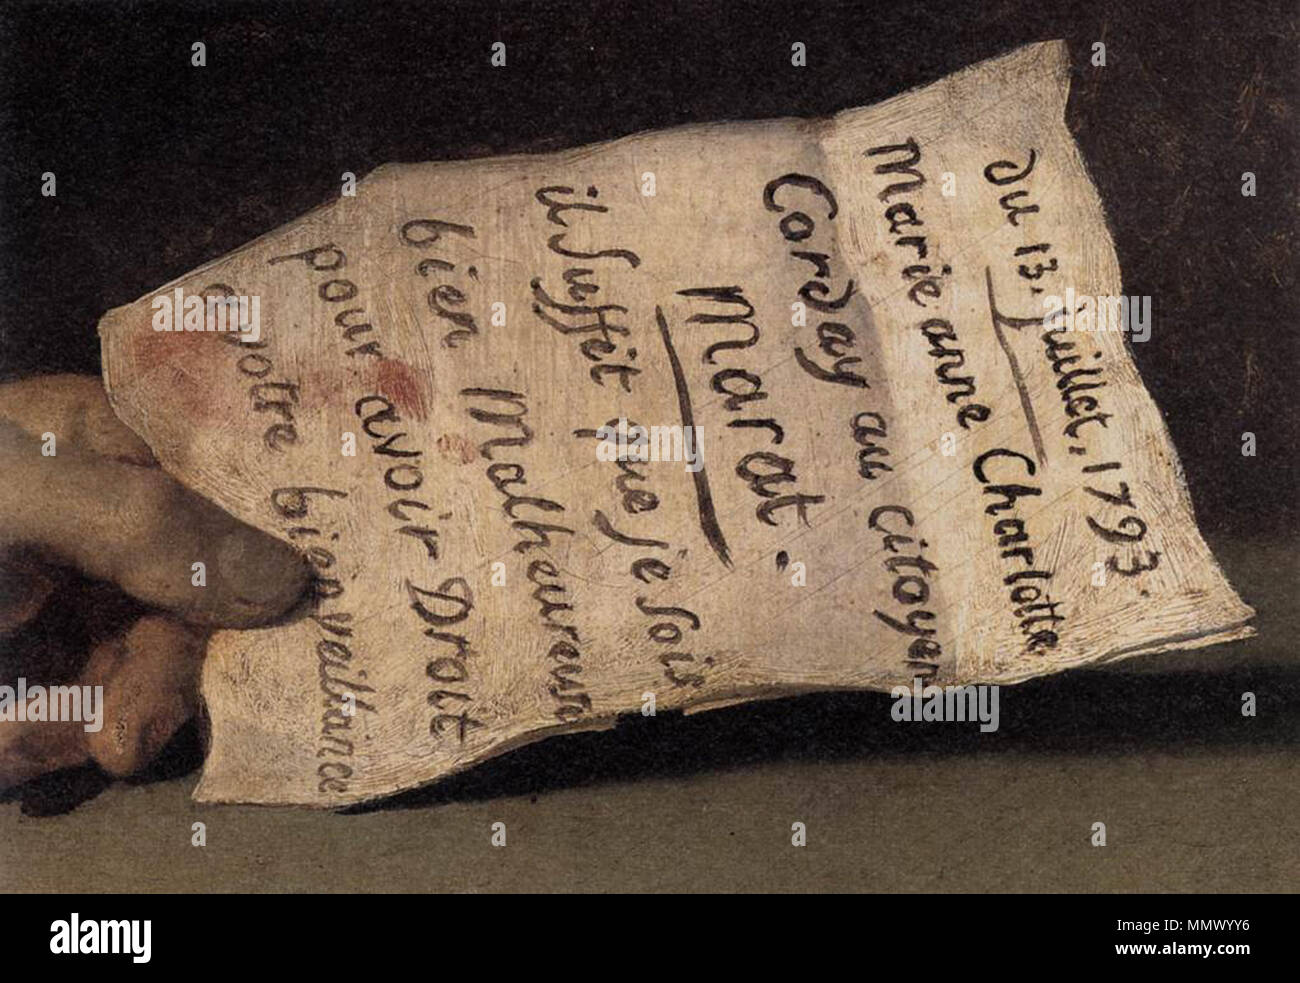 du 13. juillet, 1793.
Marie anne Charlotte
Corday au citoyen
Marat.
il suffit que je sois
bien Malheureuse
pour avoir Droit
a votre bienveillance
alamy
Image ID: MMWYY6
www.alamy.com